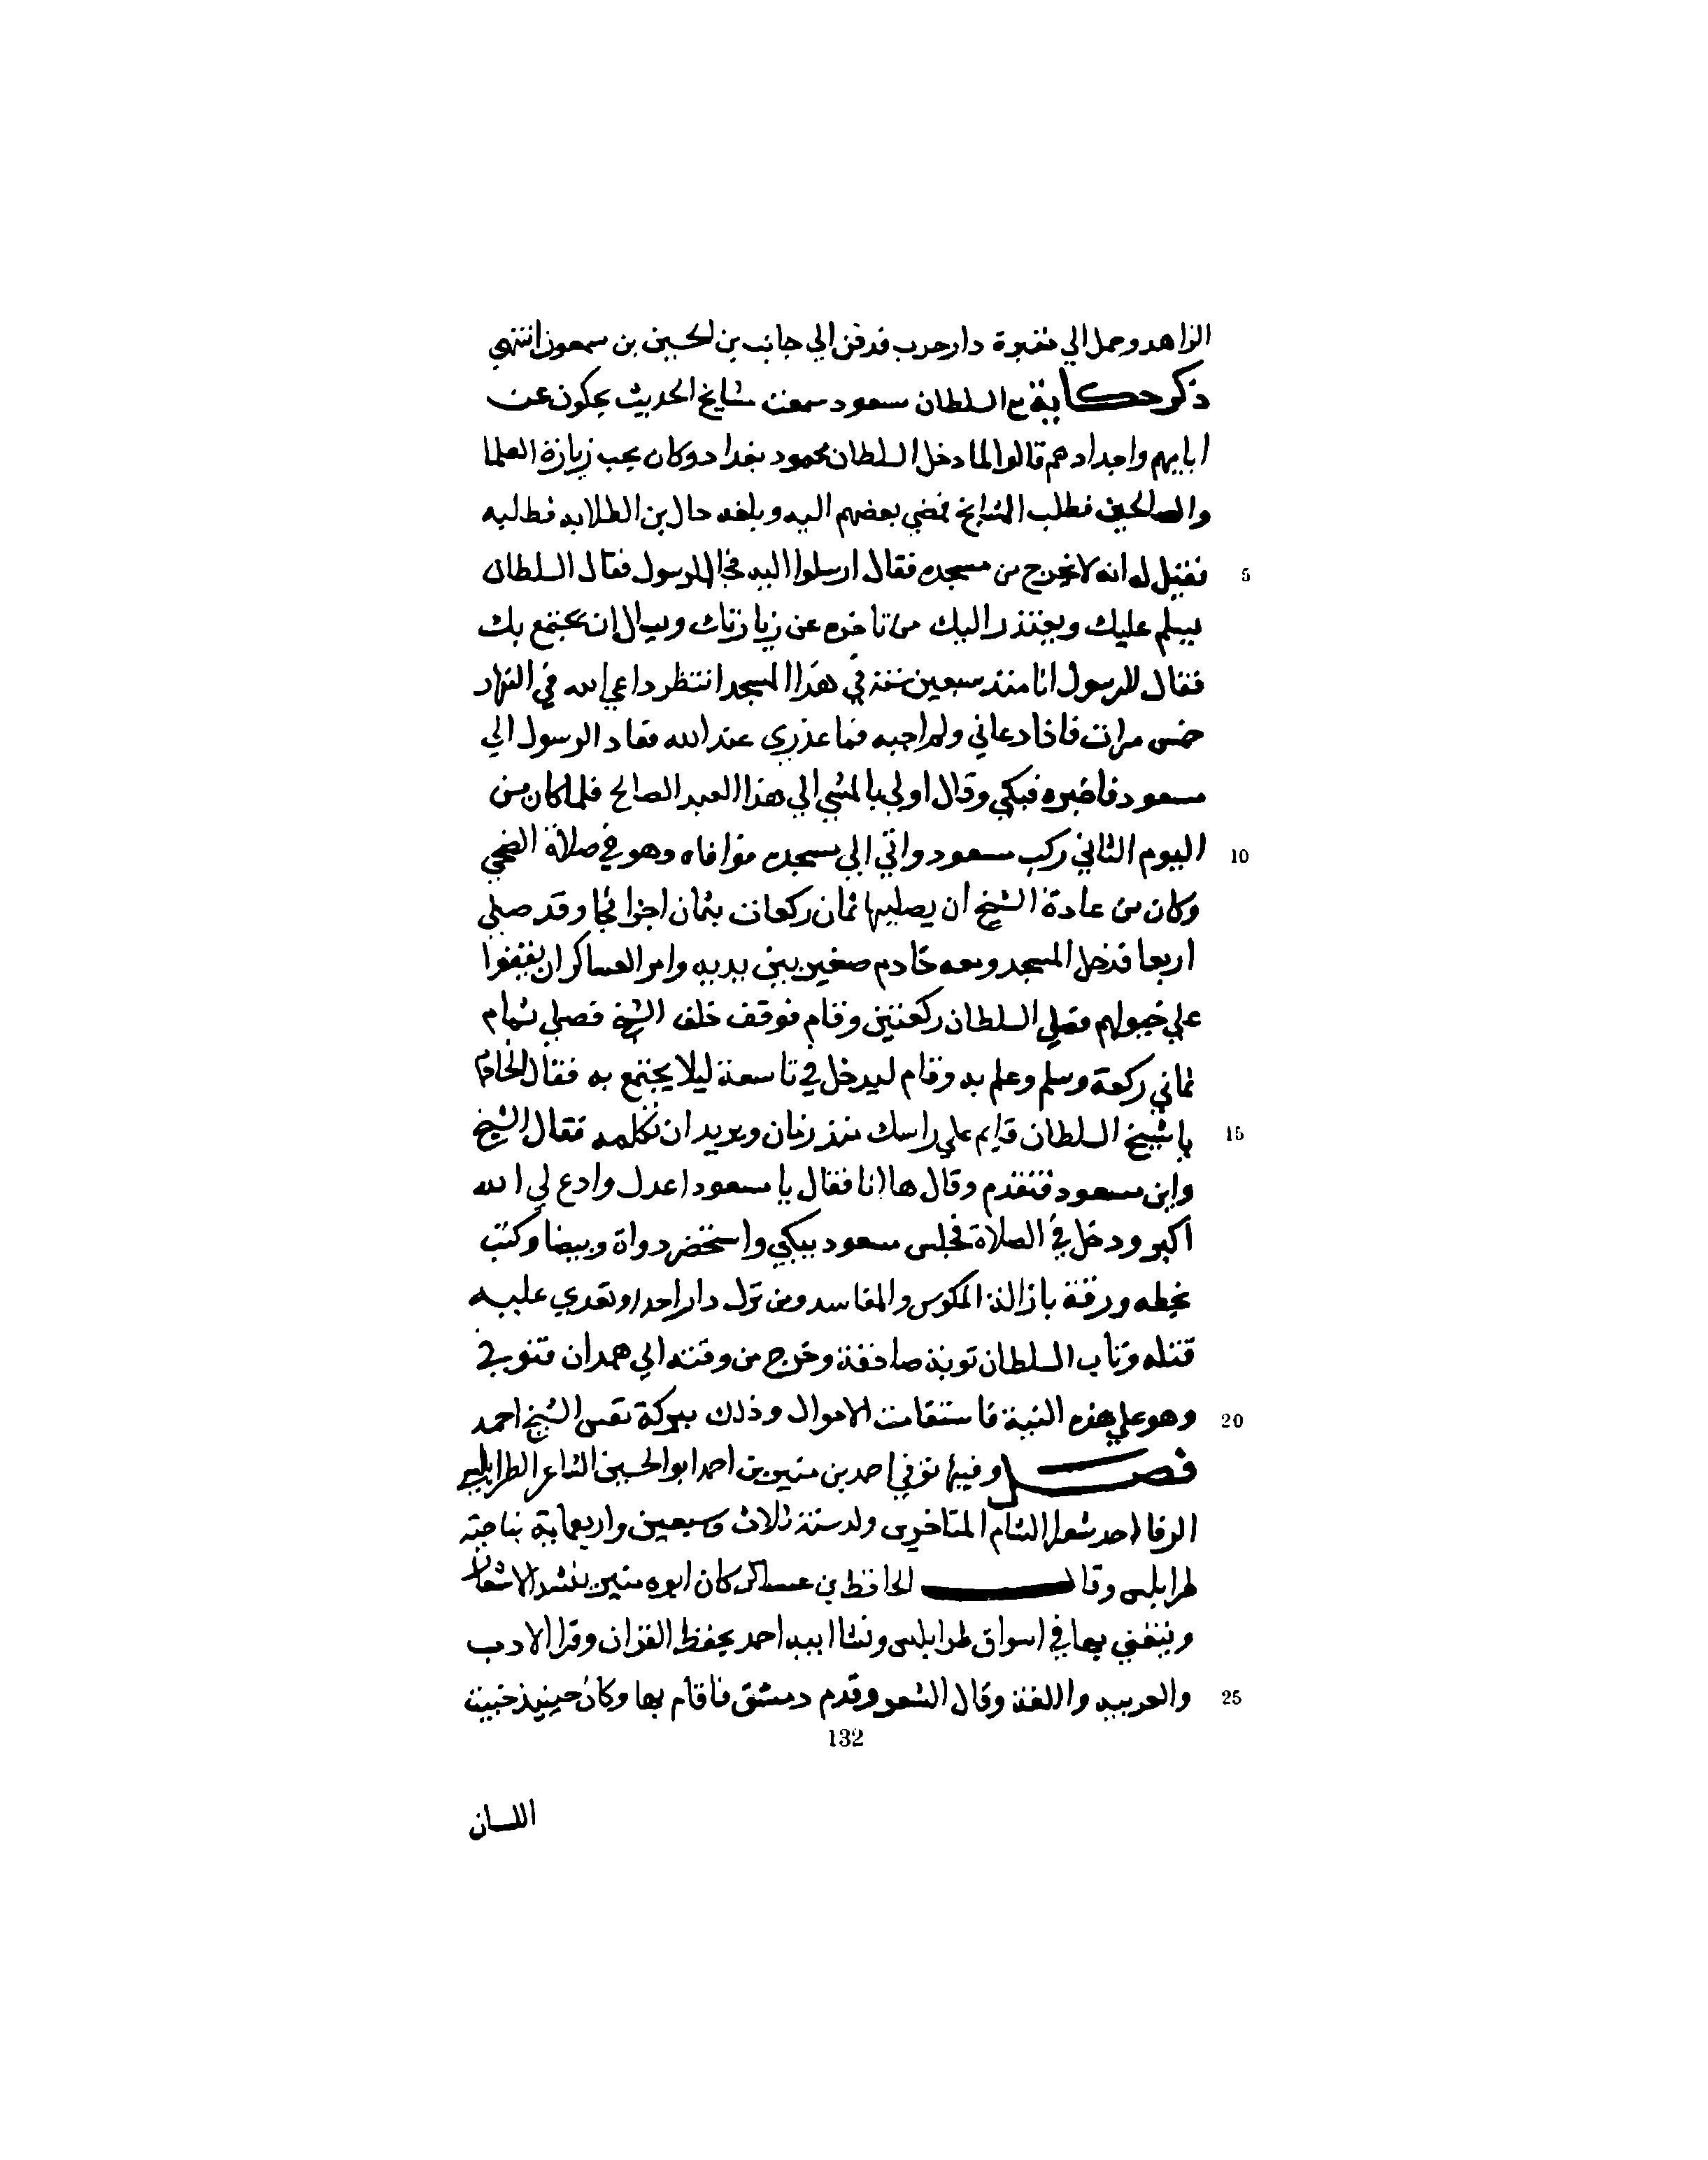 الزاهد وحمل الي مقبرة دار حرب فدفن الي جانب بن الحسين بن سمعون انتهي
ذكر حكاية مع السلطان مسعود سمعت مشايخ الحديث يحكون عن
ابايهم واجدادهم قالوا لما دخل السلطان محمود بغداد وكان يحب زيارة العلما
والصالحين فطلب المشايخ فمضي بعضهم اليه وبلغه حال بن الطلايه فطلبه
فقيل له انه لا يخرج من مسجده فقال ارسلوا اليه فجا الرسول فقال السلطان
يسلم عليك ويعتذر اليك من تاخره عن زيارتك ويسال ان يجتمع بك
فقال للرسول انا منذ سبعين سنة في هذا المسجد انتظر داعي الله في النهار
خمس مرات فاذا دعاني ولم اجبه فما عذري عند الله فعاد الرسول الي
مسعود فاخبره فبكي وقال اولي بالمشي الي هذا العبد الصالح فلما كان من
5
اليوم الثاني ركب مسعود واتي الي مسجده فوافاه وهو في صلاة الضحي
10
وكان من عادة الشيخ ان يصليها ثمان ركعات بثمان اجزا فجا وقد صلي
اربعا فدخل المسجد ومعه خادم صغير بين يديه وامر العساكر ان يقفوا
علي خيولهم فصلي السلطان ركعتين وقام فوقف خلف الشيخ فصلي تمام
ثماني ركعة وسلم وعلم به وقام ليدخل في تاسعة ليلا يجتمع به فقال الخادم
يا شيخ السلطان قايم علي راسك منذ زمان ويريد ان تكلمه فقال الشيخ
15
واين مسعود فتقدم وقال ها انا فقال يا مسعود اعدل وادع لي الله
اكبر ودخل في الصلاة فجلس مسعود يبكي واستحضر دواة وبيضا وكتب
بخطه ورقة بازالة المكوس والمفاسد ومن نزل دار احد او تعدي عليه
قتله وتاب السلطان توبة صادقة وخرج من وقته الي همدان فتوفي
وهو علي هذه النية فاستقامت الاموال وذلك ببركة نفس الشيخ احمد
20
فصل وفيها توفي احمد بن منير بن احمد ابو الحسين الشاعر الطرابلسي
الرفا احد شعرا الشام المتاخرين ولد سنة ثلاث وسبعين واربعماية بناحية
طرابلس وقال الحافظ بن عساكر كان ابوه منير ينشد الاشعار
ويتغني بها في اسواق طرابلس ونشا ابنه احمد يحفظ القران وقرا الادب
والعربيه واللغة وقال الشعر وقدم دمشق فاقام بها وكان حينيذ خبيث
25
132
اللسان